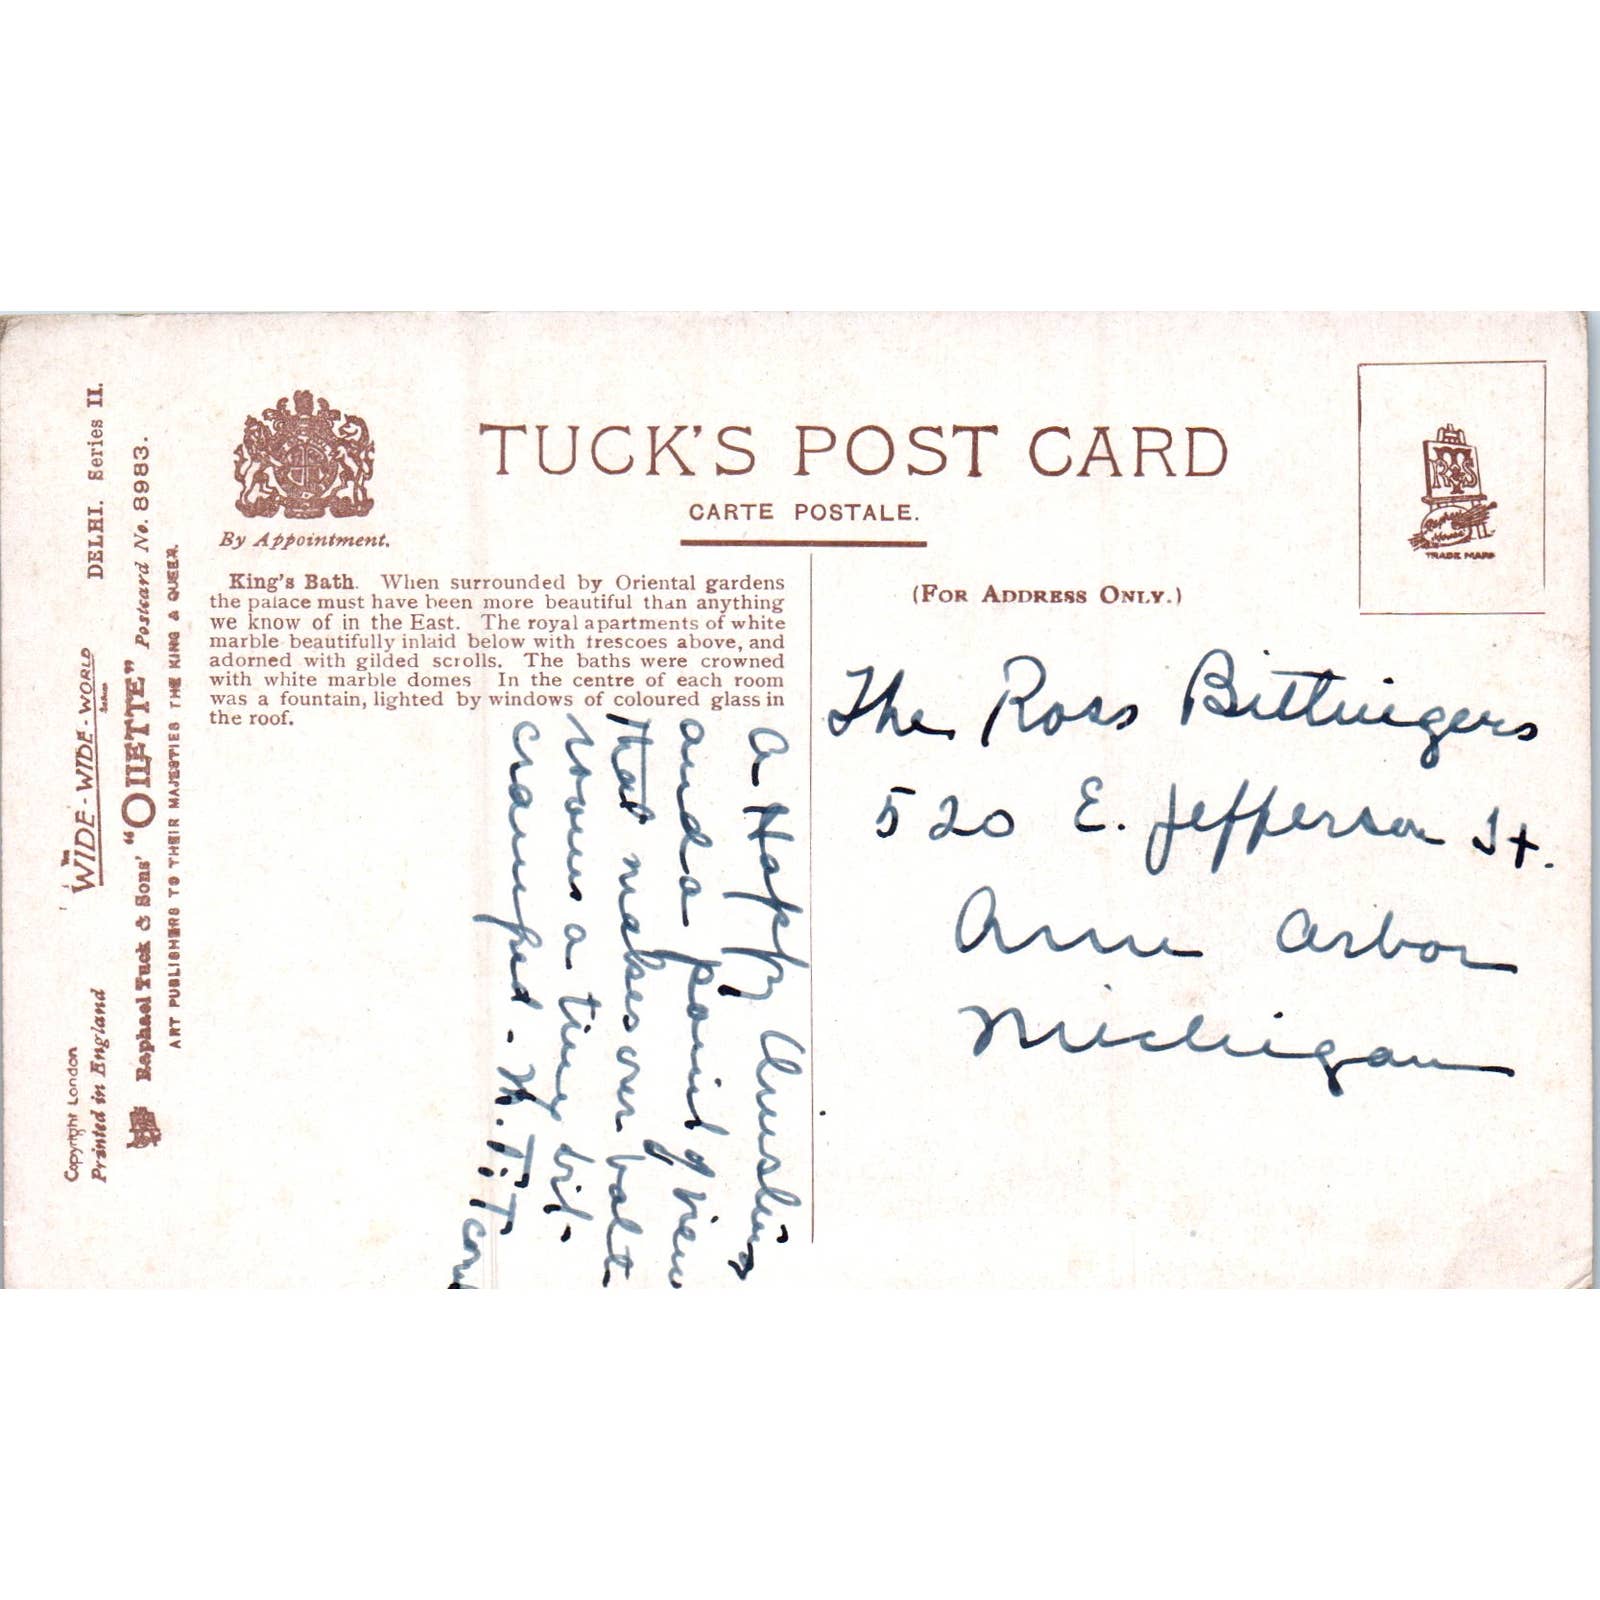 TUCK'S POST CARD
CARTE POSTALE.
By Appointment.
King's Bath. When surrounded by Oriental gardens
the palace must have been more beautiful than anything
we know of in the East. The royal apartments of white
marble beautifully inlaid below with frescoes above, and
adorned with gilded scrolls. The baths were crowned
with white marble domes In the centre of each room
was a fountain, lighted by windows of coloured glass in
the roof.
(FOR ADDRESS ONLY.)
TRADE MARK
The Ross Bittingers
520 E. Jefferson St.
Ann Arbor
Michigan
A Happy Christmas
and a point of view
that makes our
rooms a tiny bit
cramped - M.
Copyright London
Printed in England
THE WIDE-WIDE-WORLD SERIES
DELHI. Series II.
Raphael Tuck & Sons' "OILETTE" Postcard No. 8983.
ART PUBLISHERS TO THEIR MAJESTIES THE KING & QUEEN.